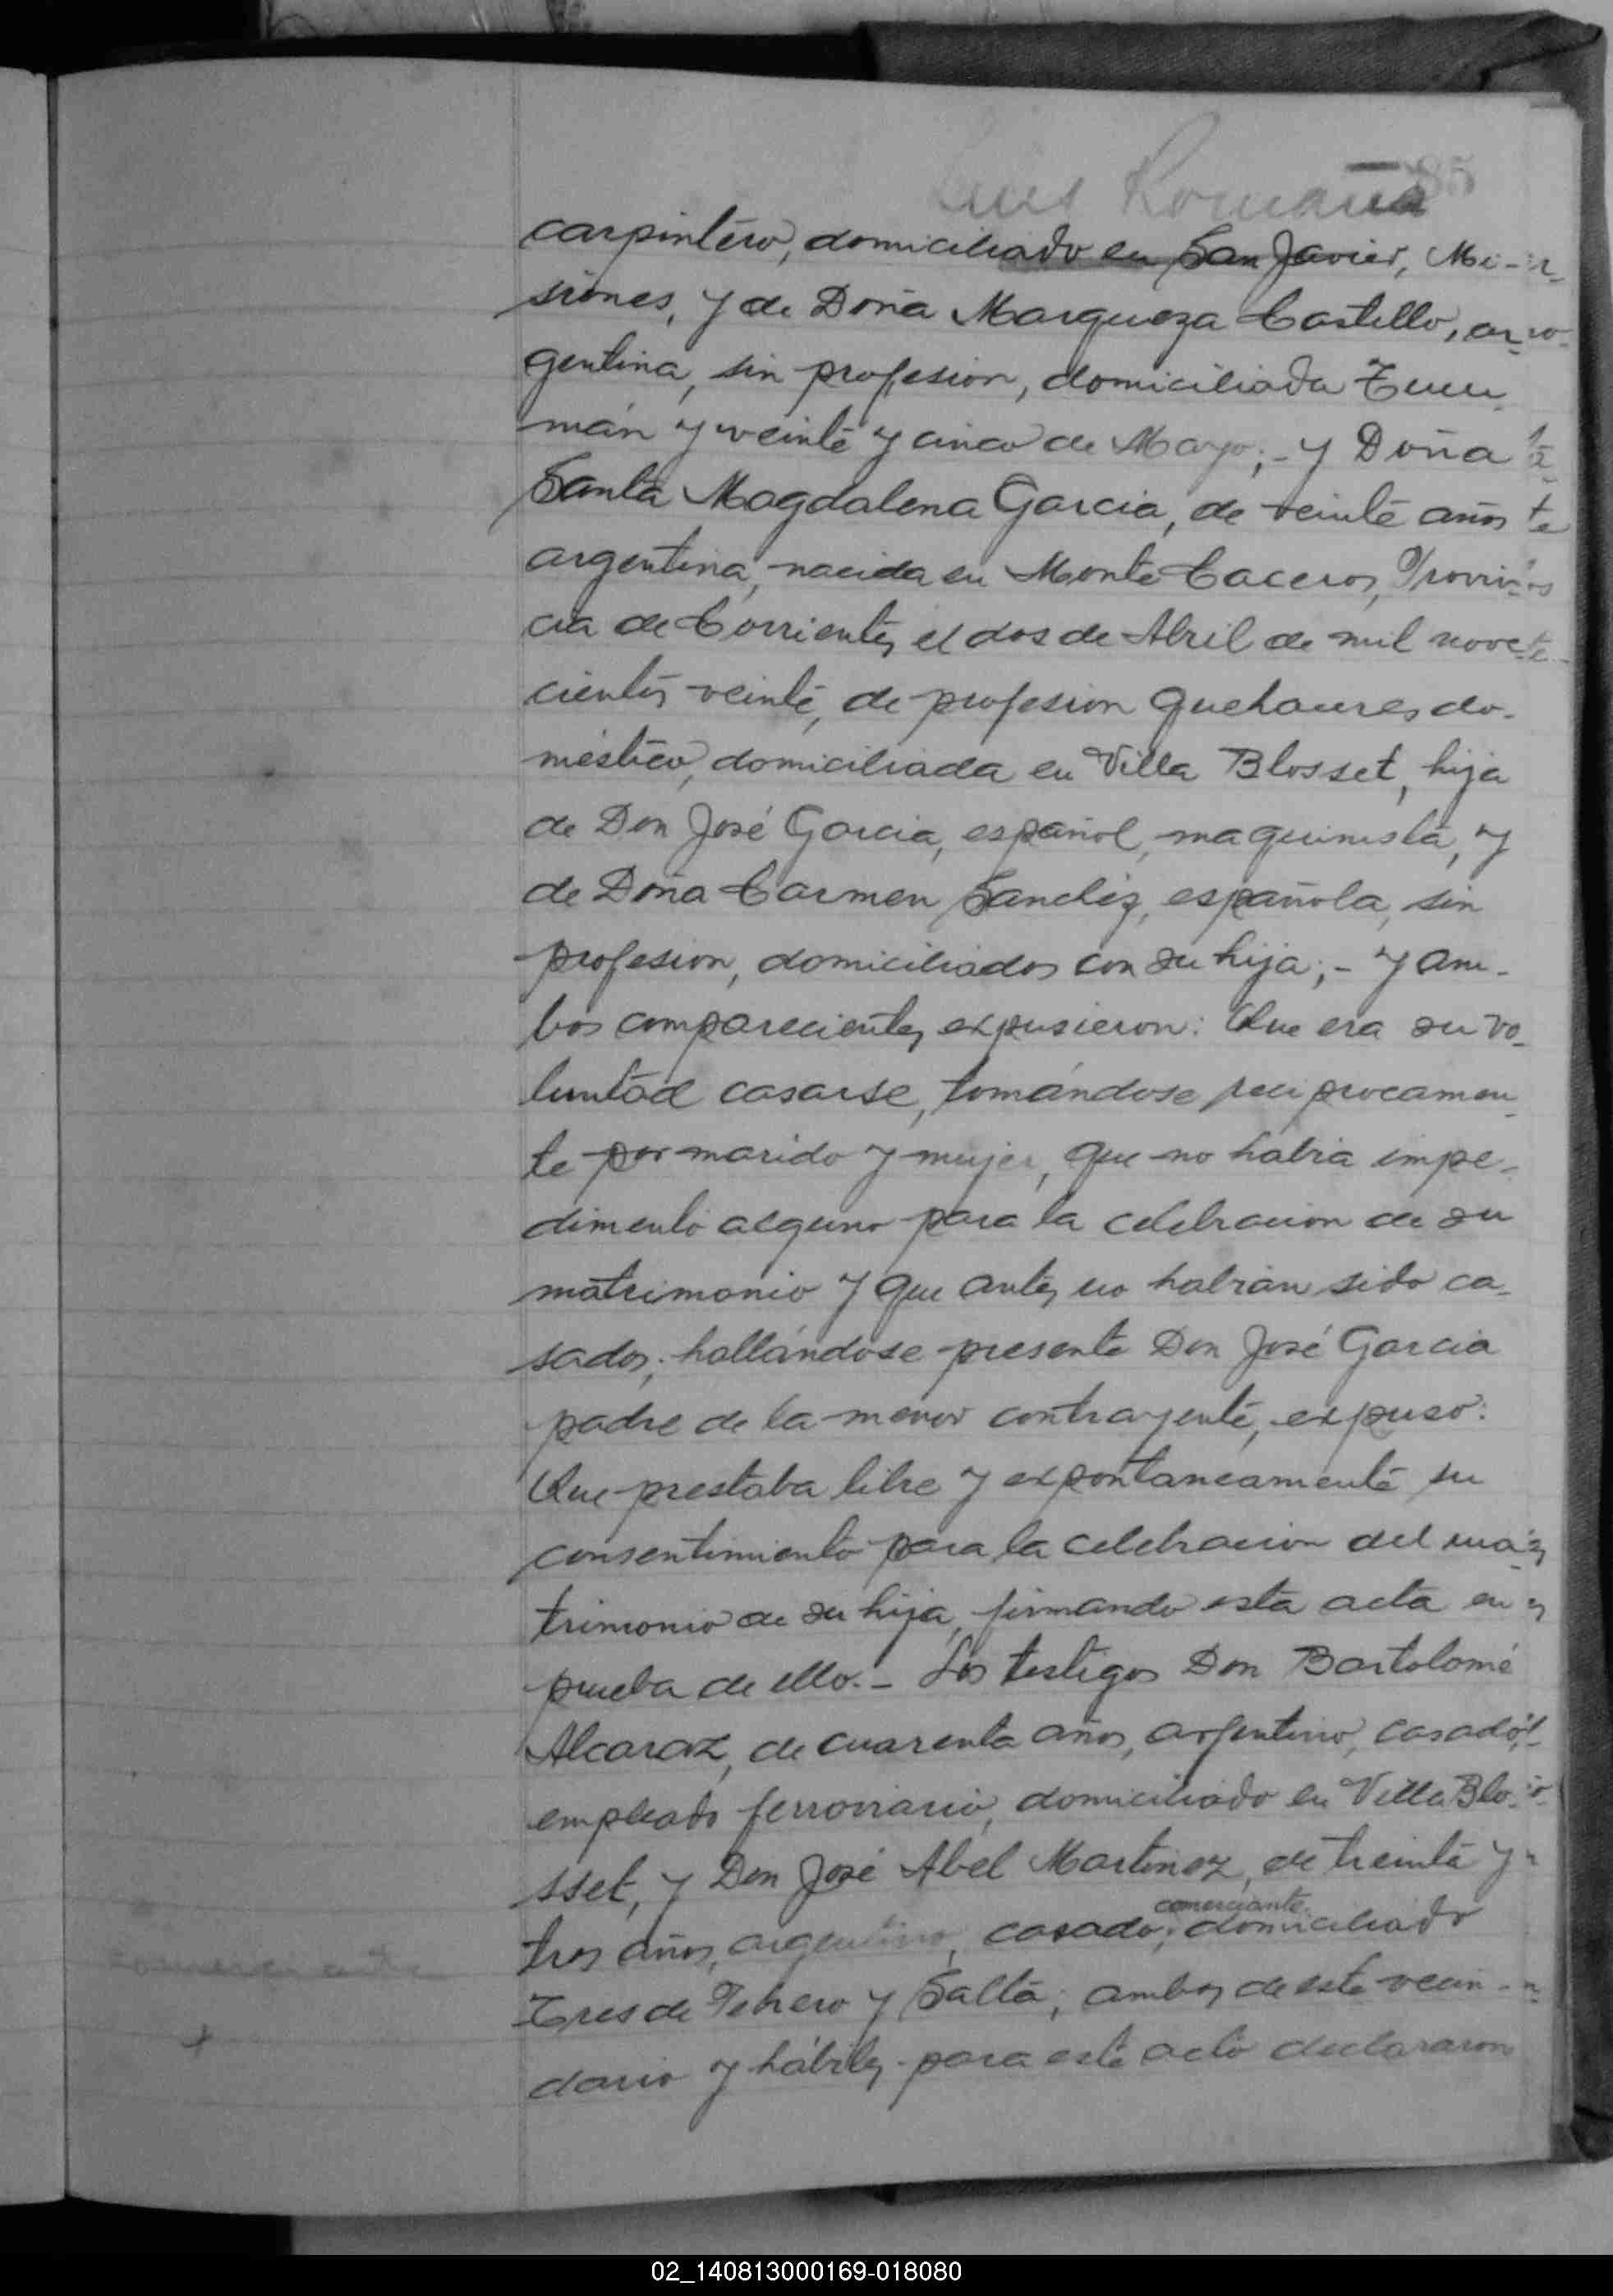 Luis Romaña 85
carpintero, domiciliado en San Javier, Mi-
siones, y de Doña Marqueza Castillo, ar-
gentina, sin profesion, domiciliada Tucu-
mán y veinte y cinco de Mayo;- y Doña
Santa Magdalena Garcia, de veinte años
argentina, nacida en Monte Caceros, Provin-
cia de Corrientes, el dos de Abril de mil nove-
cientos veinte, de profesion quehaceres do-
méstico, domiciliada en Villa Blosset, hija
de Don José Garcia, español, maquinista, y
de Doña Carmen Sanchiz, española, sin
profesion, domiciliados con su hija;- y am-
bos comparecientes expusieron: Que era su vo-
luntad casarse, tomándose reciprocamen-
te por marido y mujer, que no habia impe-
dimento alguno para la celebracion de su
matrimonio y que antes no habian sido ca-
sados; hallándose presente Don José Garcia
padre de la menor contrayente, expuso:
Que prestaba libre y expontaneamente su
consentimiento para la celebracion del ma-
trimonio de su hija, firmando esta acta en
prueba de ello.- Los testigos Don Bartolomé
Alcaraz, de cuarenta años, argentino, casado,
empleado ferroviario, domiciliado en Villa Blo-
sset, y Don José Abel Martinez, de treinta y
comerciante
tres años, argentino, casado; domiciliado
Tres de Febrero y Salta; ambos de este vecin-
dario y hábiles para este acto declararon